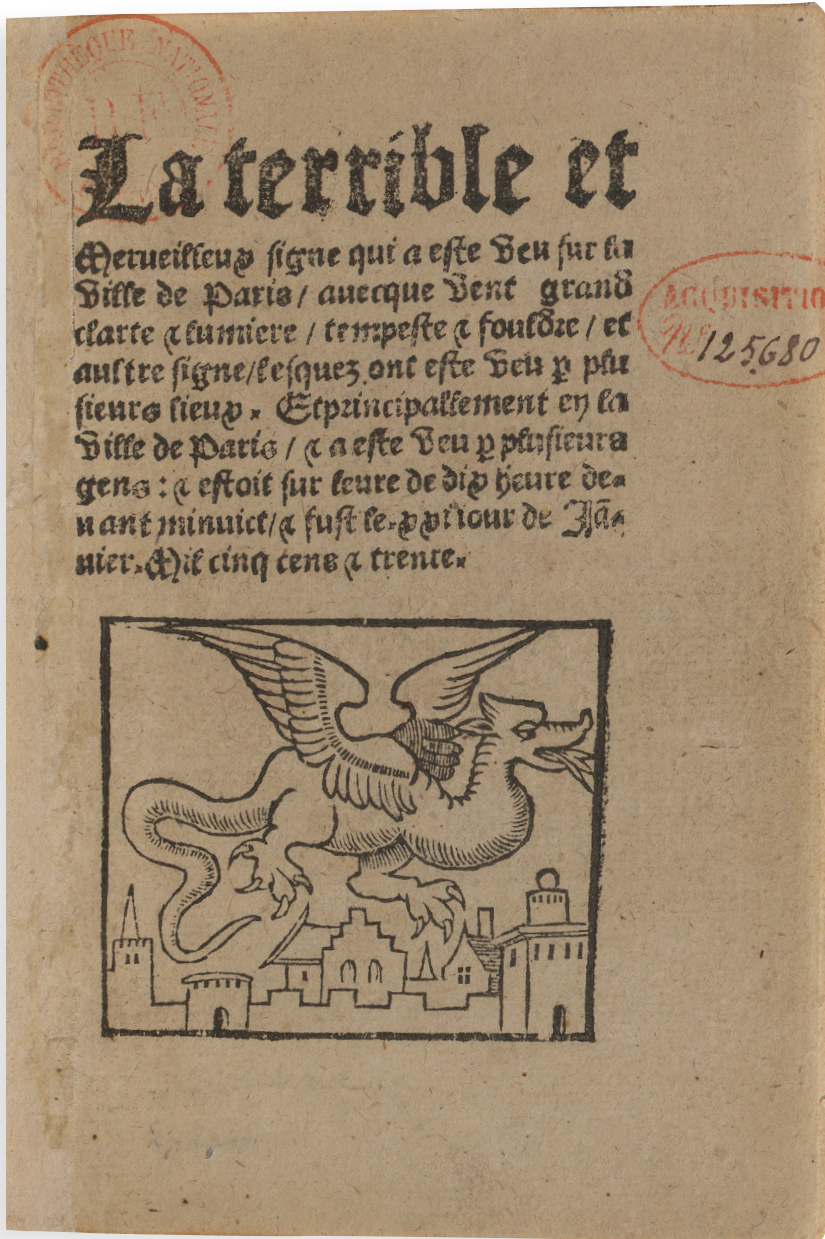 BIBLIOTHEQUE NATIONALE
La terrible et
Merueilleux signe qui a este veu sur la
ville de Paris / auecque vent grand
clarte & lumiere / tempeste & fouldre / et
aultre signe / lesquez ont este veu ꝑ plu
sieurs lieux. Et principallement en la
ville de Paris / & a este veu ꝑ plusieurs
gens : & estoit sur leure de dix heure de-
uant minuict / & fust le. xxi iour de Jā-
uier. Mil cinq cens & trente.
ACQUISITIO
No 125680